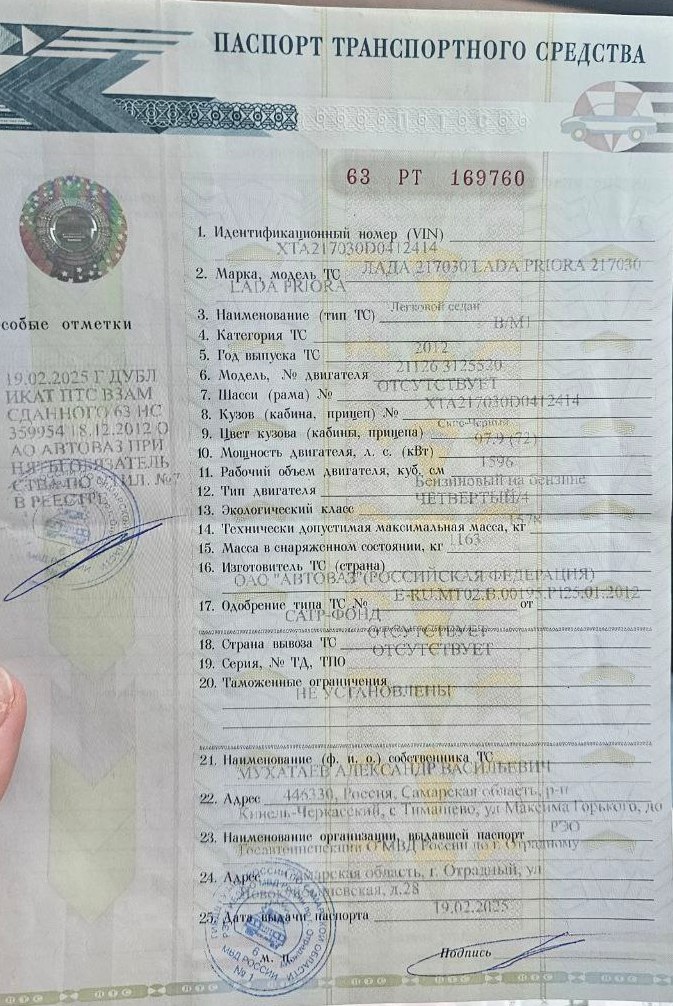 ПАСПОРТ ТРАНСПОРТНОГО СРЕДСТВА
63 РТ 169760
1. Идентификационный номер (VIN)
XTA217030D0412414
2. Марка, модель ТС ЛАДА 217030 LADA PRIORA 217030
LADA PRIORA
3. Наименование (тип ТС) Легковой седан
4. Категория ТС B/M1
5. Год выпуска ТС 2012
6. Модель, № двигателя 21126 3125520
7. Шасси (рама) № ОТСУТСТВУЕТ
8. Кузов (кабина, прицеп) № XTA217030D0412414
9. Цвет кузова (кабины, прицепа)
10. Мощность двигателя, л. с. (кВт) 97.9 (72)
11. Рабочий объем двигателя, куб. см 1596
12. Тип двигателя Бензиновый на бензине
13. Экологический класс ЧЕТВЕРТЫЙ/4
14. Технически допустимая максимальная масса, кг
15. Масса в снаряженном состоянии, кг 1163
16. Изготовитель ТС (страна)
ОАО "АВТОВАЗ"(РОССИЙСКАЯ ФЕДЕРАЦИЯ)
17. Одобрение типа ТС № от
САТР-ФОНД
18. Страна вывоза ТС ОТСУТСТВУЕТ
19. Серия, № ТД, ТПО ОТСУТСТВУЕТ
20. Таможенные ограничения
НЕ УСТАНОВЛЕНЫ
21. Наименование (ф. и. о.) собственника ТС
МУХАТАЕВ АЛЕКСАНДР ВАСИЛЬЕВИЧ
22. Адрес 446330, Россия, Самарская область, р-н
Кинель-Черкасский, с Тимашево, ул Максима Горького, до
23. Наименование организации, выдавшей паспорт РЭО
Госавтоинспекции О МВД России по г. Отрадному
24. Адрес Самарская область, г. Отрадный, ул
д.28
25. Дата выдачи паспорта 19.02.2025
м. п.
Подпись
собые отметки
19.02.2025 Г ДУБЛ
ИКАТ ПТС ВЗАМ
СДАННОГО 63 НС
359954 18.12.2012 О
АО АВТОВАЗ ПРИ
НЯТЫ ОБЯЗАТЕЛЬ
СТВА ПО УТИЛ. №7
В РЕЕСТРЕ